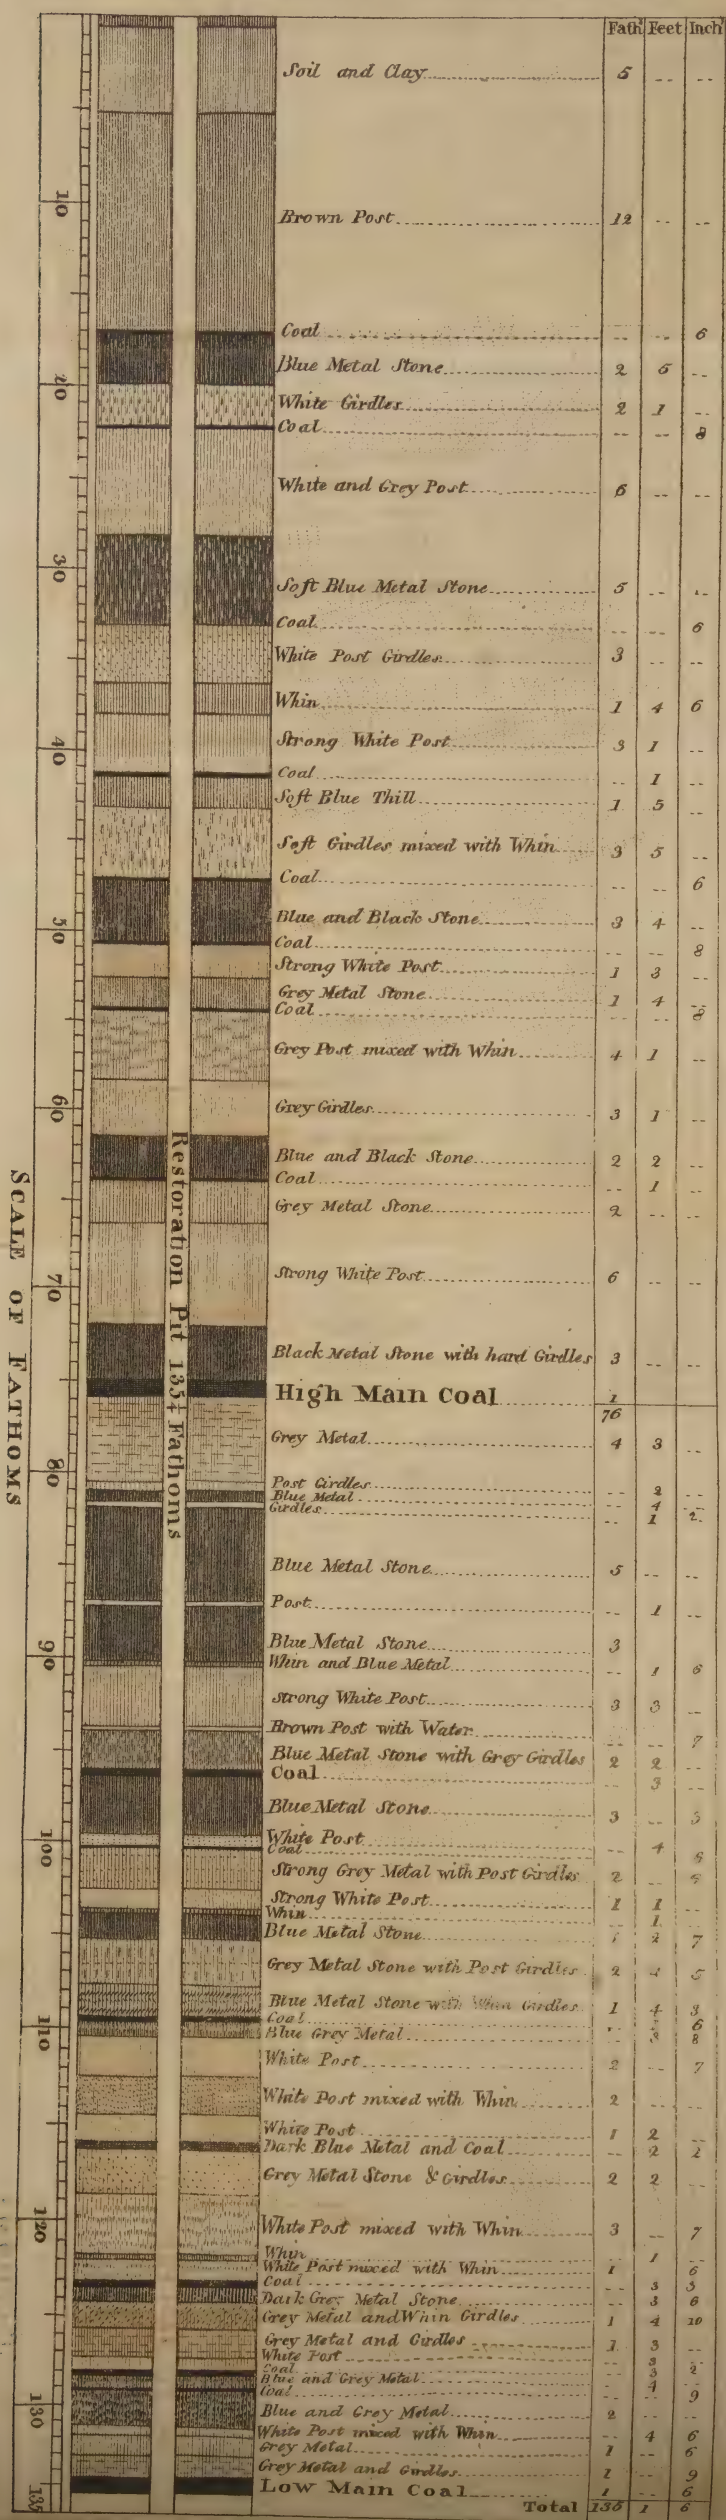 Fath^s Feet Inch^s
Soil and Clay 5 -- --
Brown Post 12 -- --
Coal -- -- 6
Blue Metal Stone 2 5 --
White Girdles 2 1 --
Coal -- -- 8
White and Grey Post 6 -- --
Soft Blue Metal Stone 5 -- --
Coal -- -- 6
White Post Girdles 3 -- --
Whin 1 4 6
Strong White Post 3 1 --
Coal -- 1 --
Soft Blue Thill 1 5 --
Soft Girdles mixed with Whin 3 5 --
Coal -- -- 6
Blue and Black Stone 3 4 --
Coal -- -- 8
Strong White Post 1 3 --
Grey Metal Stone 1 4 --
Coal -- -- 8
Grey Post mixed with Whin 4 1 --
Grey Girdles 3 1 --
Blue and Black Stone 2 2 --
Coal -- 1 --
Grey Metal Stone 2 -- --
Strong White Post 6 -- --
Black Metal Stone with hard Girdles 3 -- --
High Main Coal 1
76
Grey Metal 4 3 --
Post Girdles -- 2 --
Blue Metal -- 4 --
Girdles -- 1 2
Blue Metal Stone 5 -- --
Post -- 1 --
Blue Metal Stone 3
Whin and Blue Metal -- 1 6
Strong White Post 3 3 --
Brown Post with Water -- -- 7
Blue Metal Stone with Grey Girdles 2 2 --
Coal -- 3 --
Blue Metal Stone 3 --
White Post -- 4
Coal
Strong Grey Metal with Post Girdles 2 --
Strong White Post 1 1 --
Whin -- 1
Blue Metal Stone 1 2 7
Grey Metal Stone with Post Girdles 2
Blue Metal Stone with Whin Girdles 1 4 3
Coal 6
Blue Grey Metal 8
White Post 2 -- 7
White Post mixed with Whin 2 --
White Post 1 2 --
Dark Blue Metal and Coal -- 2
Grey Metal Stone & Girdles 2 2 --
White Post mixed with Whin 3 -- 7
Whin -- 1 --
White Post mixed with Whin 1 -- 6
Coal -- 3 3
Dark Grey Metal Stone -- 3 6
Grey Metal and Whin Girdles 1 4 10
Grey Metal and Girdles 1 3 --
White Post -- 3
Coal -- 3 2
Blue and Grey Metal -- 4
Coal -- -- 9
Blue and Grey Metal 2 -- --
White Post mixed with Whin -- 4 6
Grey Metal 1 -- 6
Grey Metal and Girdles 1 -- 9
Low Main Coal 1 -- 6
Total 135 1 6
Restoration Pit 135¼ Fathoms
SCALE OF FATHOMS
10
20
30
40
50
60
70
80
90
100
110
120
130
135